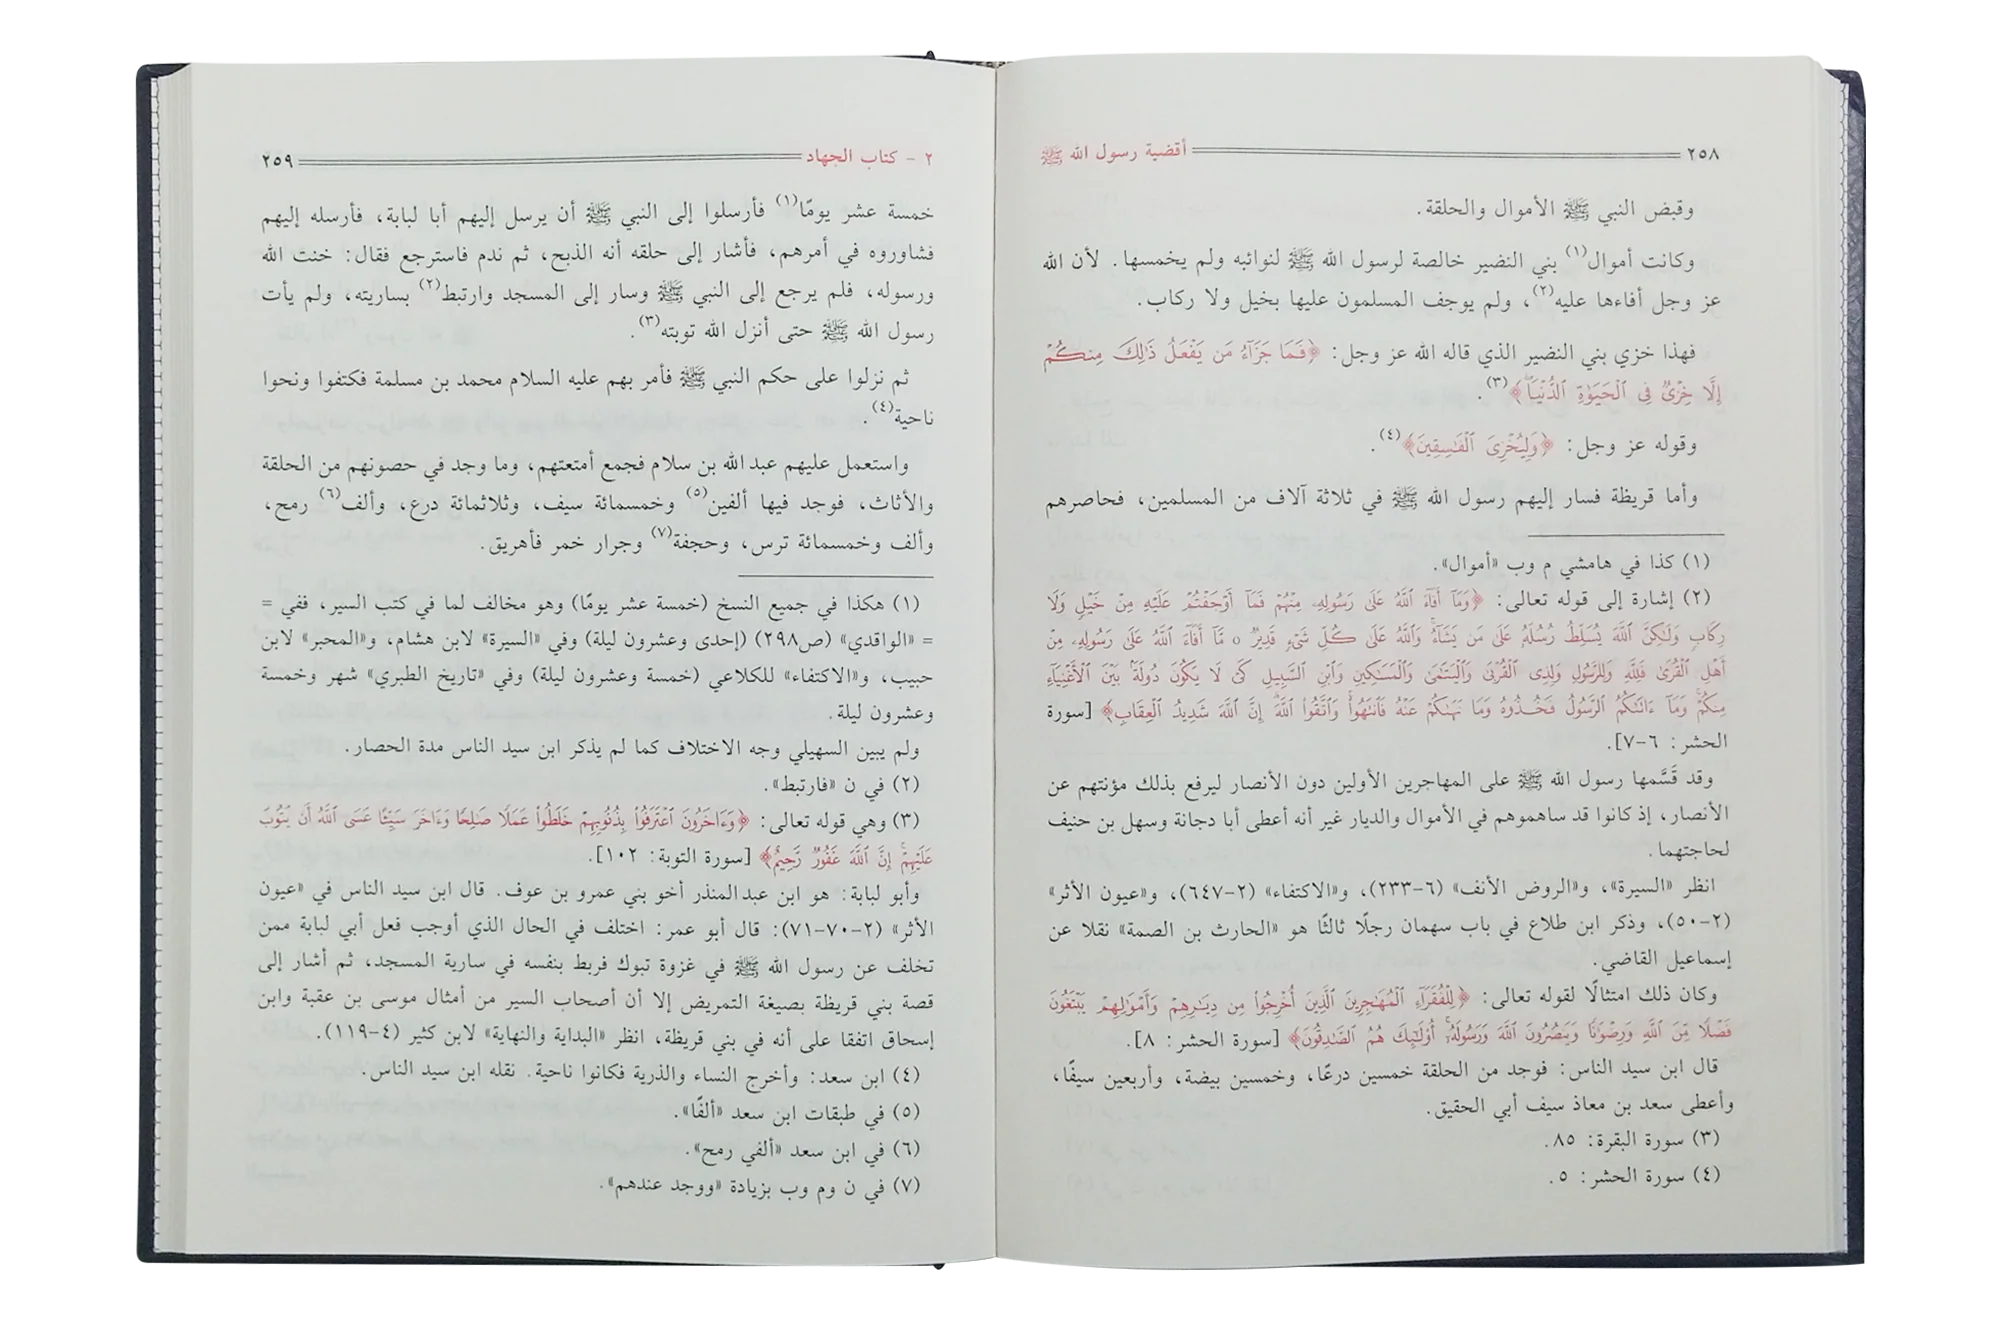 ٢٥٨ أقضية رسول الله ﷺ
وقبض النبي ﷺ الأموال والحلقة.
وكانت أموال(١) بني النضير خالصة لرسول الله ﷺ لنوائبه ولم يخمسها. لأن الله
عز وجل أفاءها عليه(٢)، ولم يوجف المسلمون عليها بخيل ولا ركاب.
فهذا خزي بني النضير الذي قاله الله عز وجل: ﴿فَمَا جَزَآءُ مَن يَفْعَلُ ذَٰلِكَ مِنكُمْ
إِلَّا خِزْىٌ فِى ٱلْحَيَوٰةِ ٱلدُّنْيَا﴾(٣).
وقوله عز وجل: ﴿وَلِيُخْزِىَ ٱلْفَٰسِقِينَ﴾(٤).
وأما قريظة فسار إليهم رسول الله ﷺ في ثلاثة آلاف من المسلمين، فحاصرهم
(١) كذا في هامشي م وب «أموال».
(٢) إشارة إلى قوله تعالى: ﴿وَمَآ أَفَآءَ ٱللَّهُ عَلَىٰ رَسُولِهِۦ مِنْهُمْ فَمَآ أَوْجَفْتُمْ عَلَيْهِ مِنْ خَيْلٍ وَلَا
رِكَابٍ وَلَٰكِنَّ ٱللَّهَ يُسَلِّطُ رُسُلَهُۥ عَلَىٰ مَن يَشَآءُ وَٱللَّهُ عَلَىٰ كُلِّ شَىْءٍ قَدِيرٌ ۝ مَّآ أَفَآءَ ٱللَّهُ عَلَىٰ رَسُولِهِۦ مِنْ
أَهْلِ ٱلْقُرَىٰ فَلِلَّهِ وَلِلرَّسُولِ وَلِذِى ٱلْقُرْبَىٰ وَٱلْيَتَٰمَىٰ وَٱلْمَسَٰكِينِ وَٱبْنِ ٱلسَّبِيلِ كَىْ لَا يَكُونَ دُولَةًۢ بَيْنَ ٱلْأَغْنِيَآءِ
مِنكُمْ وَمَآ ءَاتَىٰكُمُ ٱلرَّسُولُ فَخُذُوهُ وَمَا نَهَىٰكُمْ عَنْهُ فَٱنتَهُوا۟ وَٱتَّقُوا۟ ٱللَّهَ إِنَّ ٱللَّهَ شَدِيدُ ٱلْعِقَابِ﴾ [سورة
الحشر: ٦-٧].
وقد قَسَّمها رسول الله ﷺ على المهاجرين الأولين دون الأنصار ليرفع بذلك مؤنتهم عن
الأنصار، إذ كانوا قد ساهموهم في الأموال والديار غير أنه أعطى أبا دجانة وسهل بن حنيف
لحاجتهما.
انظر «السيرة»، و«الروض الأنف» (٦-٢٣٣)، و«الاكتفاء» (٢-٦٤٧)، و«عيون الأثر»
(٢-٥٠)، وذكر ابن طلاع في باب سهمان رجلًا ثالثًا هو «الحارث بن الصمة» نقلا عن
إسماعيل القاضي.
وكان ذلك امتثالًا لقوله تعالى: ﴿لِلْفُقَرَآءِ ٱلْمُهَٰجِرِينَ ٱلَّذِينَ أُخْرِجُوا۟ مِن دِيَٰرِهِمْ وَأَمْوَٰلِهِمْ يَبْتَغُونَ
فَضْلًا مِّنَ ٱللَّهِ وَرِضْوَٰنًا وَيَنصُرُونَ ٱللَّهَ وَرَسُولَهُۥٓ أُو۟لَٰٓئِكَ هُمُ ٱلصَّٰدِقُونَ﴾ [سورة الحشر: ٨].
قال ابن سيد الناس: فوجد من الحلقة خمسين درعًا، وخمسين بيضة، وأربعين سيفًا،
وأعطى سعد بن معاذ سيف أبي الحقيق.
(٣) سورة البقرة: ٨٥.
(٤) سورة الحشر: ٥.
٢ - كتاب الجهاد ٢٥٩
خمسة عشر يومًا(١) فأرسلوا إلى النبي ﷺ أن يرسل إليهم أبا لبابة، فأرسله إليهم
فشاوروه في أمرهم، فأشار إلى حلقه أنه الذبح، ثم ندم فاسترجع فقال: خنت الله
ورسوله، فلم يرجع إلى النبي ﷺ وسار إلى المسجد وارتبط(٢) بساريته، ولم يأت
رسول الله ﷺ حتى أنزل الله توبته(٣).
ثم نزلوا على حكم النبي ﷺ فأمر بهم عليه السلام محمد بن مسلمة فكتفوا ونحوا
ناحية(٤).
واستعمل عليهم عبد الله بن سلام فجمع أمتعتهم، وما وجد في حصونهم من الحلقة
والأثاث، فوجد فيها ألفين(٥) وخمسمائة سيف، وثلاثمائة درع، وألف(٦) رمح،
وألف وخمسمائة ترس، وحجفة(٧) وجرار خمر فأهريق.
(١) هكذا في جميع النسخ (خمسة عشر يومًا) وهو مخالف لما في كتب السير، ففي =
= «الواقدي» (ص٢٩٨) (إحدى وعشرون ليلة) وفي «السيرة» لابن هشام، و«المحبر» لابن
حبيب، و«الاكتفاء» للكلاعي (خمسة وعشرون ليلة) وفي «تاريخ الطبري» شهر وخمسة
وعشرون ليلة.
ولم يبين السهيلي وجه الاختلاف كما لم يذكر ابن سيد الناس مدة الحصار.
(٢) في ن «فارتبط».
(٣) وهي قوله تعالى: ﴿وَءَاخَرُونَ ٱعْتَرَفُوا۟ بِذُنُوبِهِمْ خَلَطُوا۟ عَمَلًا صَٰلِحًا وَءَاخَرَ سَيِّئًا عَسَى ٱللَّهُ أَن يَتُوبَ
عَلَيْهِمْ إِنَّ ٱللَّهَ غَفُورٌ رَّحِيمٌ﴾ [سورة التوبة: ١٠٢].
وأبو لبابة: هو ابن عبدالمنذر أخو بني عمرو بن عوف. قال ابن سيد الناس في «عيون
الأثر» (٢-٧٠-٧١): قال أبو عمر: اختلف في الحال الذي أوجب فعل أبي لبابة ممن
تخلف عن رسول الله ﷺ في غزوة تبوك فربط بنفسه في سارية المسجد، ثم أشار إلى
قصة بني قريظة بصيغة التمريض إلا أن أصحاب السير من أمثال موسى بن عقبة وابن
إسحاق اتفقا على أنه في بني قريظة، انظر «البداية والنهاية» لابن كثير (٤-١١٩).
(٤) ابن سعد: وأخرج النساء والذرية فكانوا ناحية. نقله ابن سيد الناس.
(٥) في طبقات ابن سعد «ألفًا».
(٦) في ابن سعد «ألفي رمح».
(٧) في ن وم وب بزيادة «ووجد عندهم».